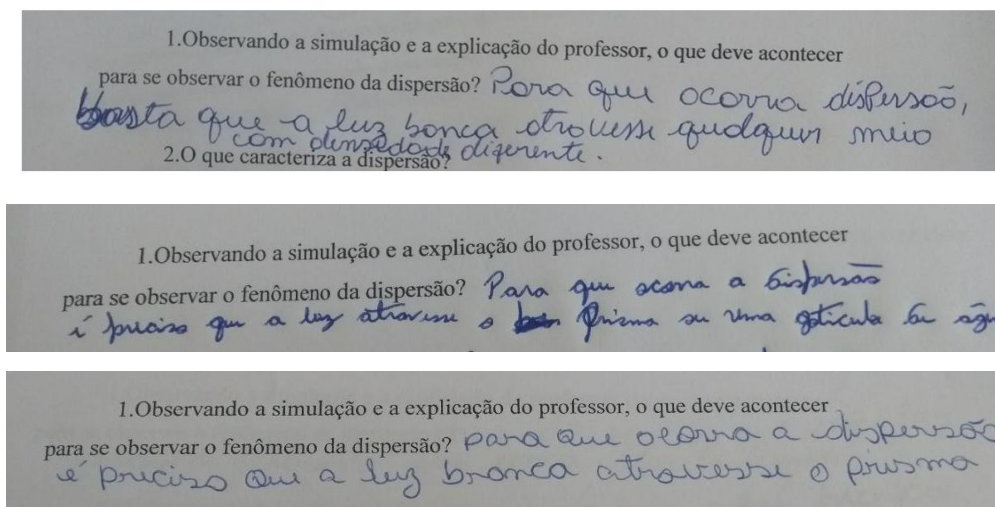 1.Observando a simulação e a explicação do professor, o que deve acontecer
para se observar o fenômeno da dispersão? Para que ocorra dispersão,
basta que a luz bonca atravesse qualquer meio
com densidade diferente.
2.O que caracteriza a dispersão?
1.Observando a simulação e a explicação do professor, o que deve acontecer
para se observar o fenômeno da dispersão? Para que ocorra a dispersão
é preciso que a luz atravesse o Prisma ou uma goticula de águ
1.Observando a simulação e a explicação do professor, o que deve acontecer
para se observar o fenômeno da dispersão? para que ocorra a dispersão
é preciso que a luz branca atravesse o prisma